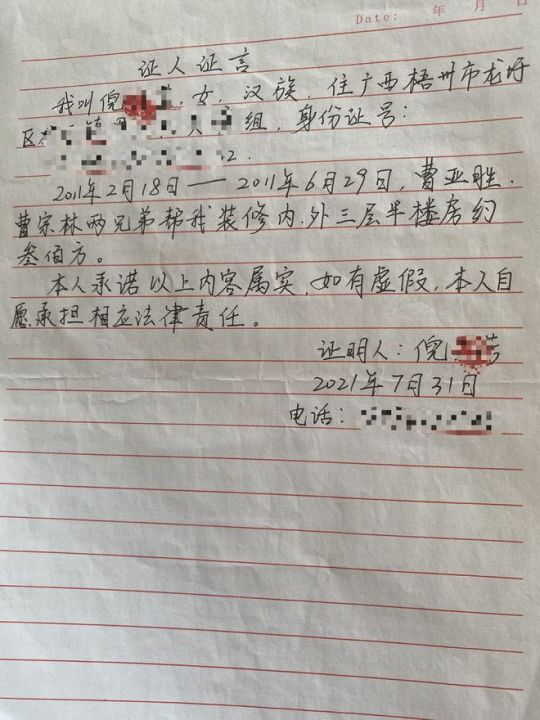 Date: 年 月 日
证人证言
我叫倪 ,女,汉族,住广西梧州市龙圩
区 组,身份证号:
2.
2011年2月18日——2011年6月29日,曹亚胜.
曹宗林两兄弟帮我装修内.外三层半楼房约
叁佰方。
本人承诺以上内容属实,如有虚假,本人自
愿承担相应法律责任。
证明人:倪 芳
2021年7月31日
电话: